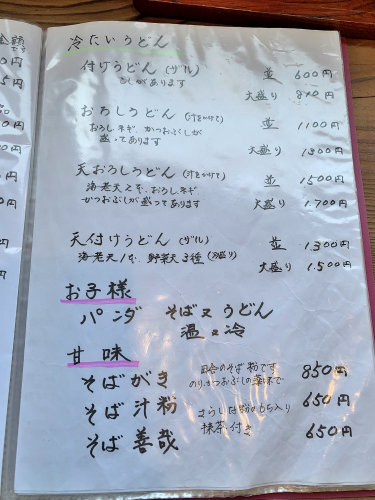 金額
です
0円
5円
0円
0円
0円
0円
0円
冷たいうどん
付けうどん (ザル) 並 600円
こしがあります
大盛り 800円
おろしうどん (汁をかけて) 並 1100円
おろしネギ、かつおぶしが
盛ってあります
大盛り 1300円
天おろしうどん (汁をかけて)
海老天2本、おろしネギ、 並 1500円
かつおぶしが盛ってあります 大盛り 1.700円
天付けうどん (ザル) 並 1.300円
海老天1本、野菜天3種 大盛り 1.500円
お子様
パンダ そば又うどん
温又冷
甘味
そばがき 田舎のそば粉です 850円
のり、かつおぶしの薬味で
そば汁粉 さらしな粉のもち入り 650円
そば善哉 抹茶付き 650円